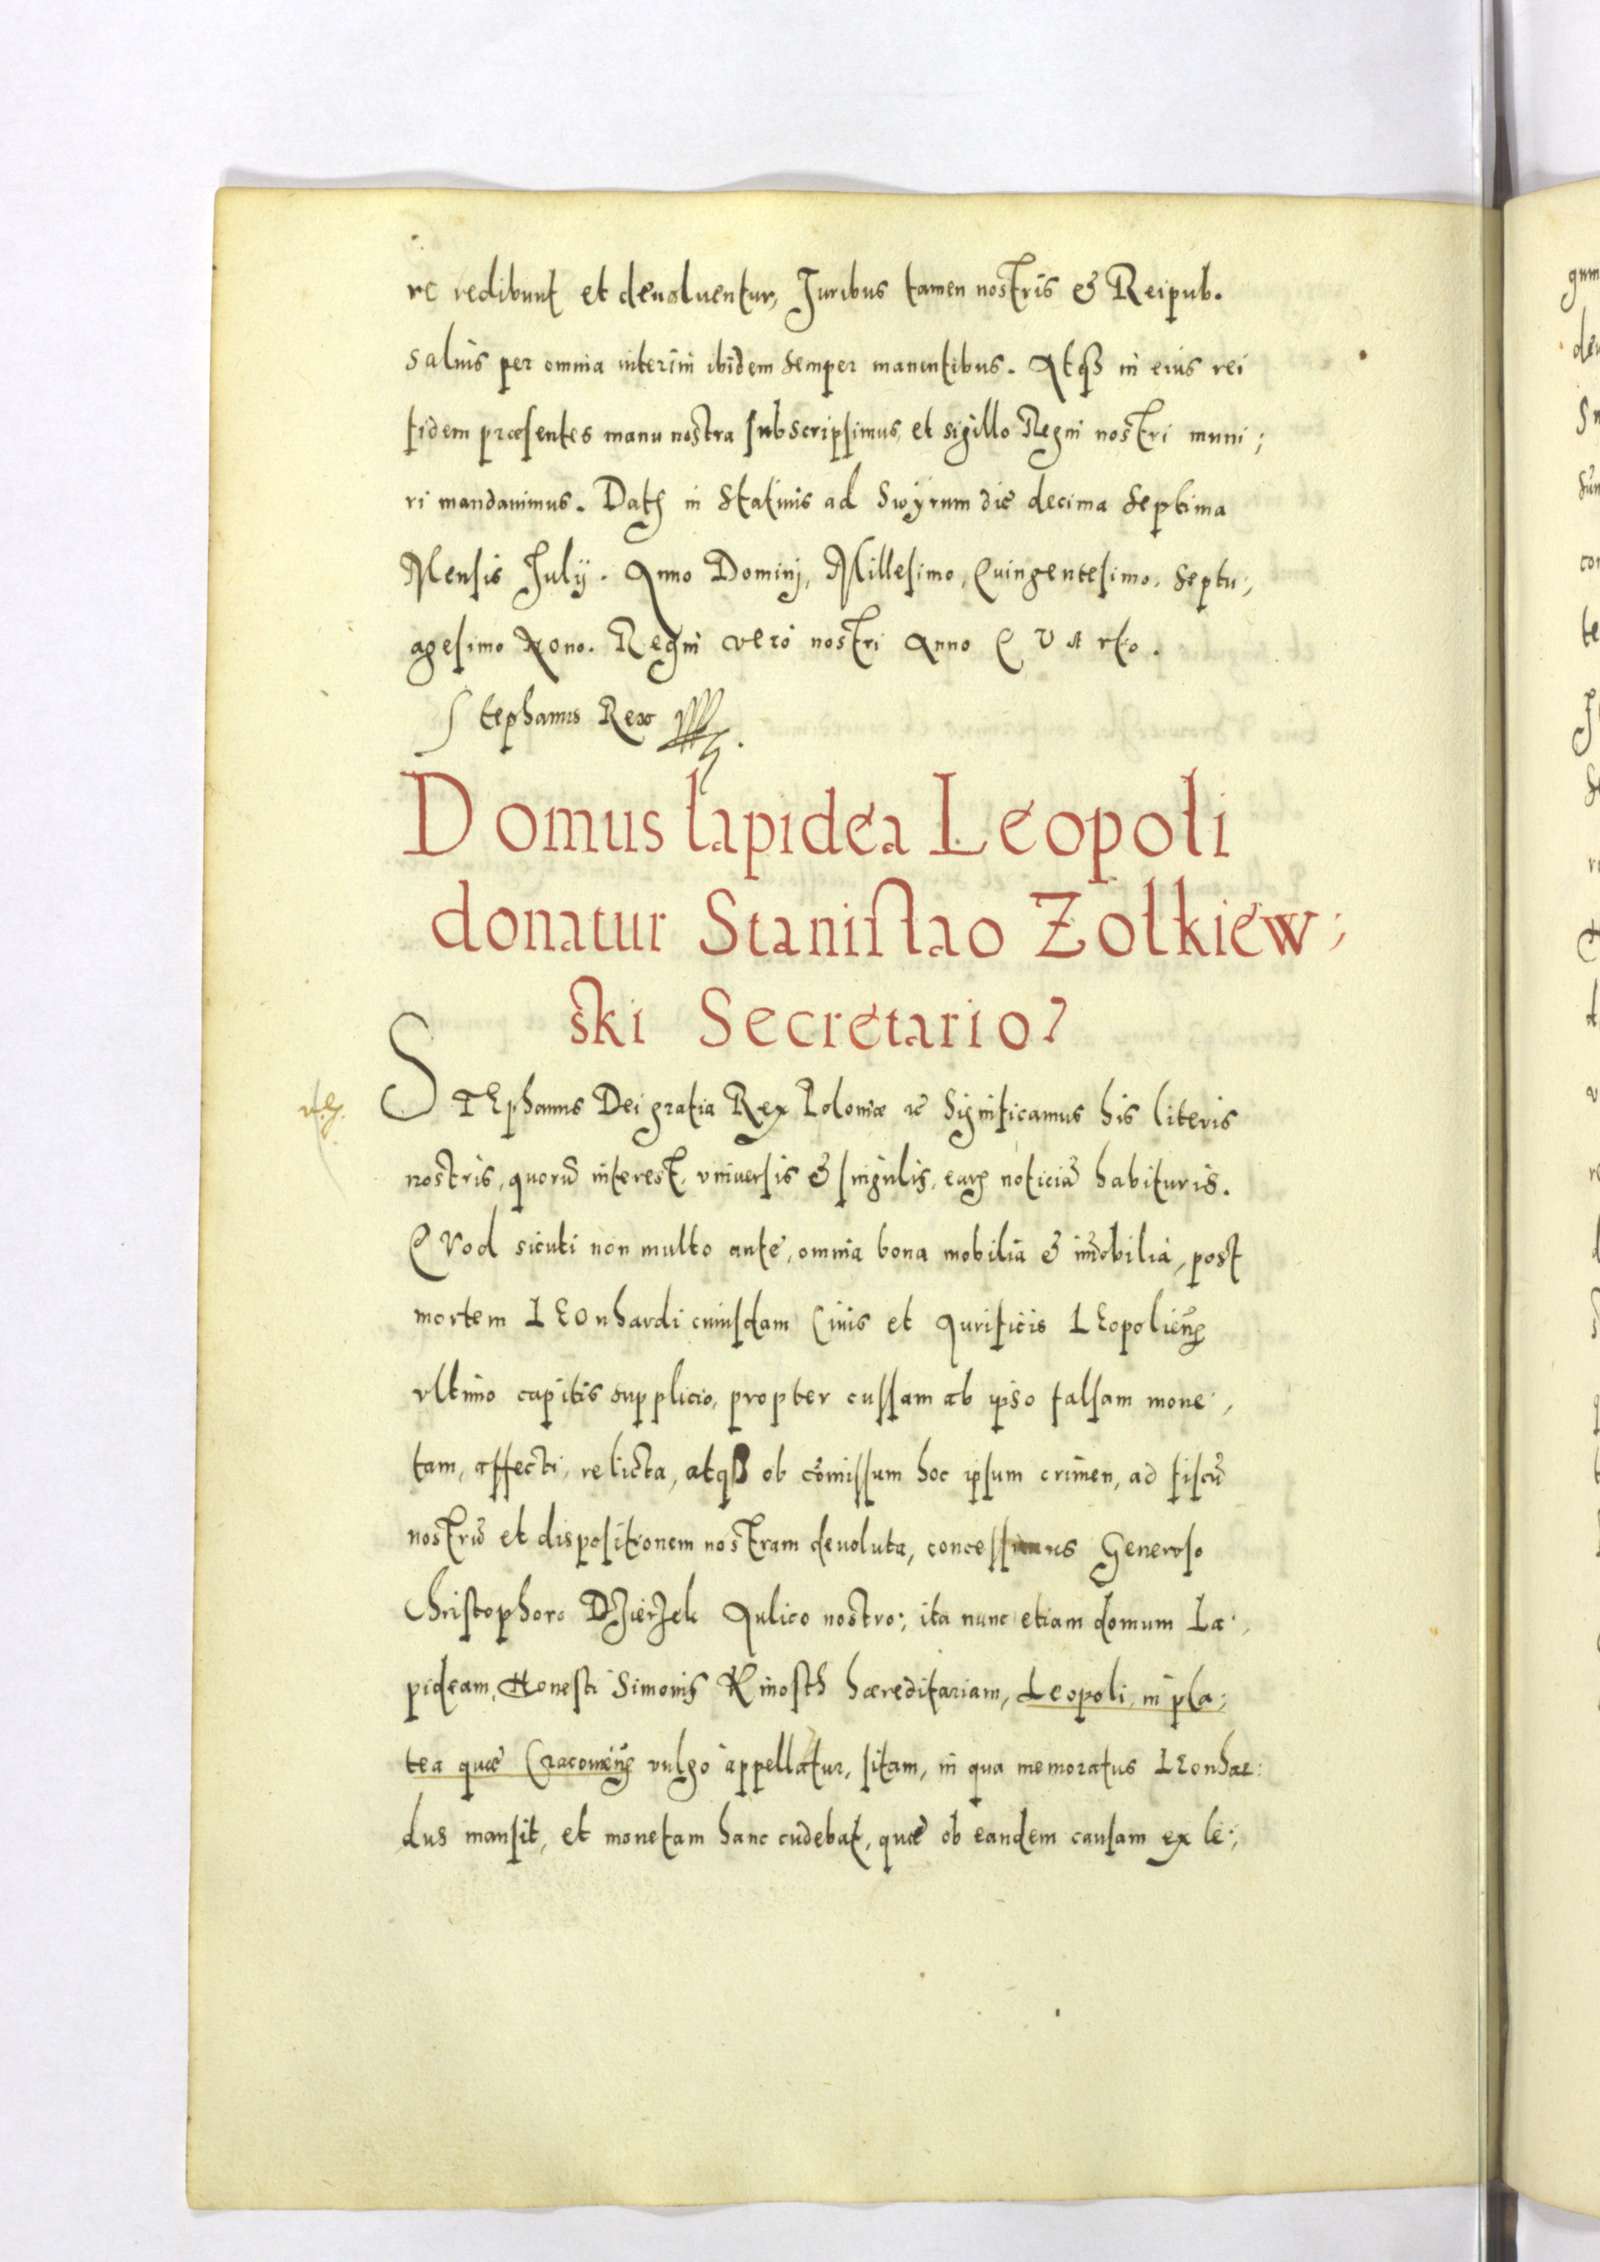 re redibunt et deuoluentur, Juribus tamen nostris & Reipub.
saluis per omnia interim ibidem semper manentibus. Atqȝ in eius rei
fidem præsentes manu nostra subscripsimus, et sigillo Regni nostri muni;
ri mandauimus. Datȝ in Statiuis ad Swyrum die decima septima
Mensis July. Anno Dominj, Millesimo, Quingentesimo, Septu;
agesimo Nono. Regni vero nostri Anno QVArto.
Stephanus Rex
Domus lapidea Leopoli
donatur Stanislao Zołkiew;
ski Secretario
STEphanus Dei gratia Rex Poloniæ &c Significamus his literis
nostris, quorū interest, vniuersis & singulis, earȝ noticiā habituris.
QVod sicuti non multo ante, omnia bona mobilia & im̄obilia, post
mortem LEOnhardi cuiusdam Ciuis et Aurificis LEopolienȝ
vltimo capitis supplicio, propter cussam ab ipso falsam mone;
tam, affecti, relicta, atqȝ ob com̄issum hoc ipsum crimen, ad fiscū
nostrū et dispositionem nostram deuoluta, concessimus Generoso
Christophoro Dzierzek Aulico nostro; ita nunc etiam domum La;
pideam, Honesti Simonis hæreditariam, Leopoli, in pla;
tea quæ Cracouienȝ vulgo appellatur, sitam, in qua memoratus LEonhar:
dus mansit, et monetam hanc cudebat, quæ ob eandem causam ex le;